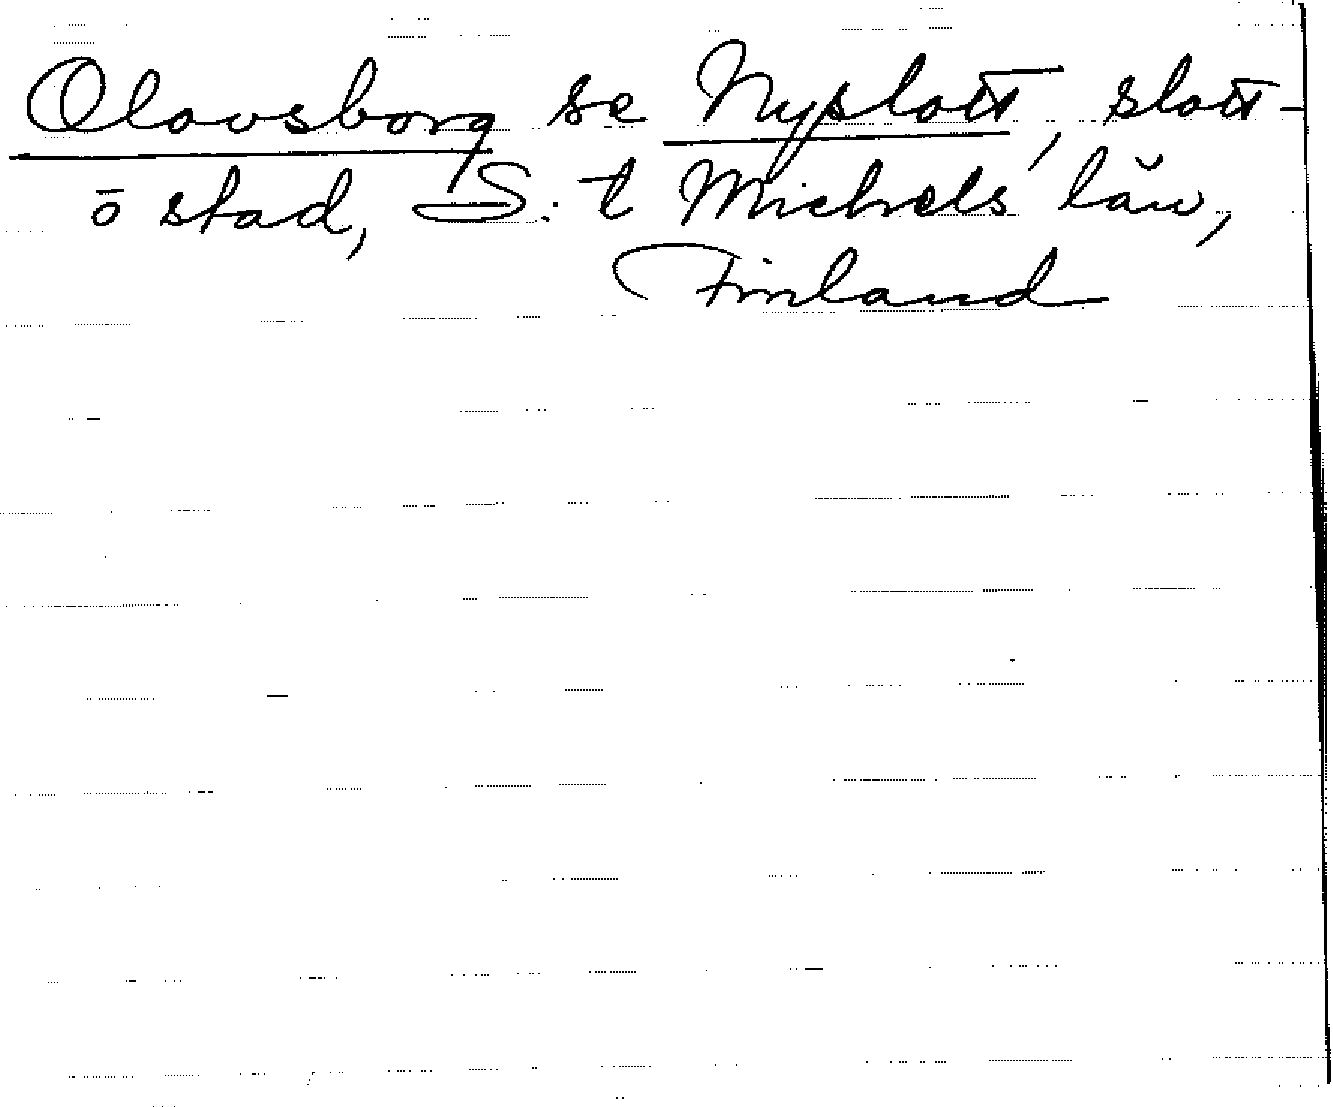 Olovsborg se Nyslott, slott-
ō stad, S:t Michels län,
Finland